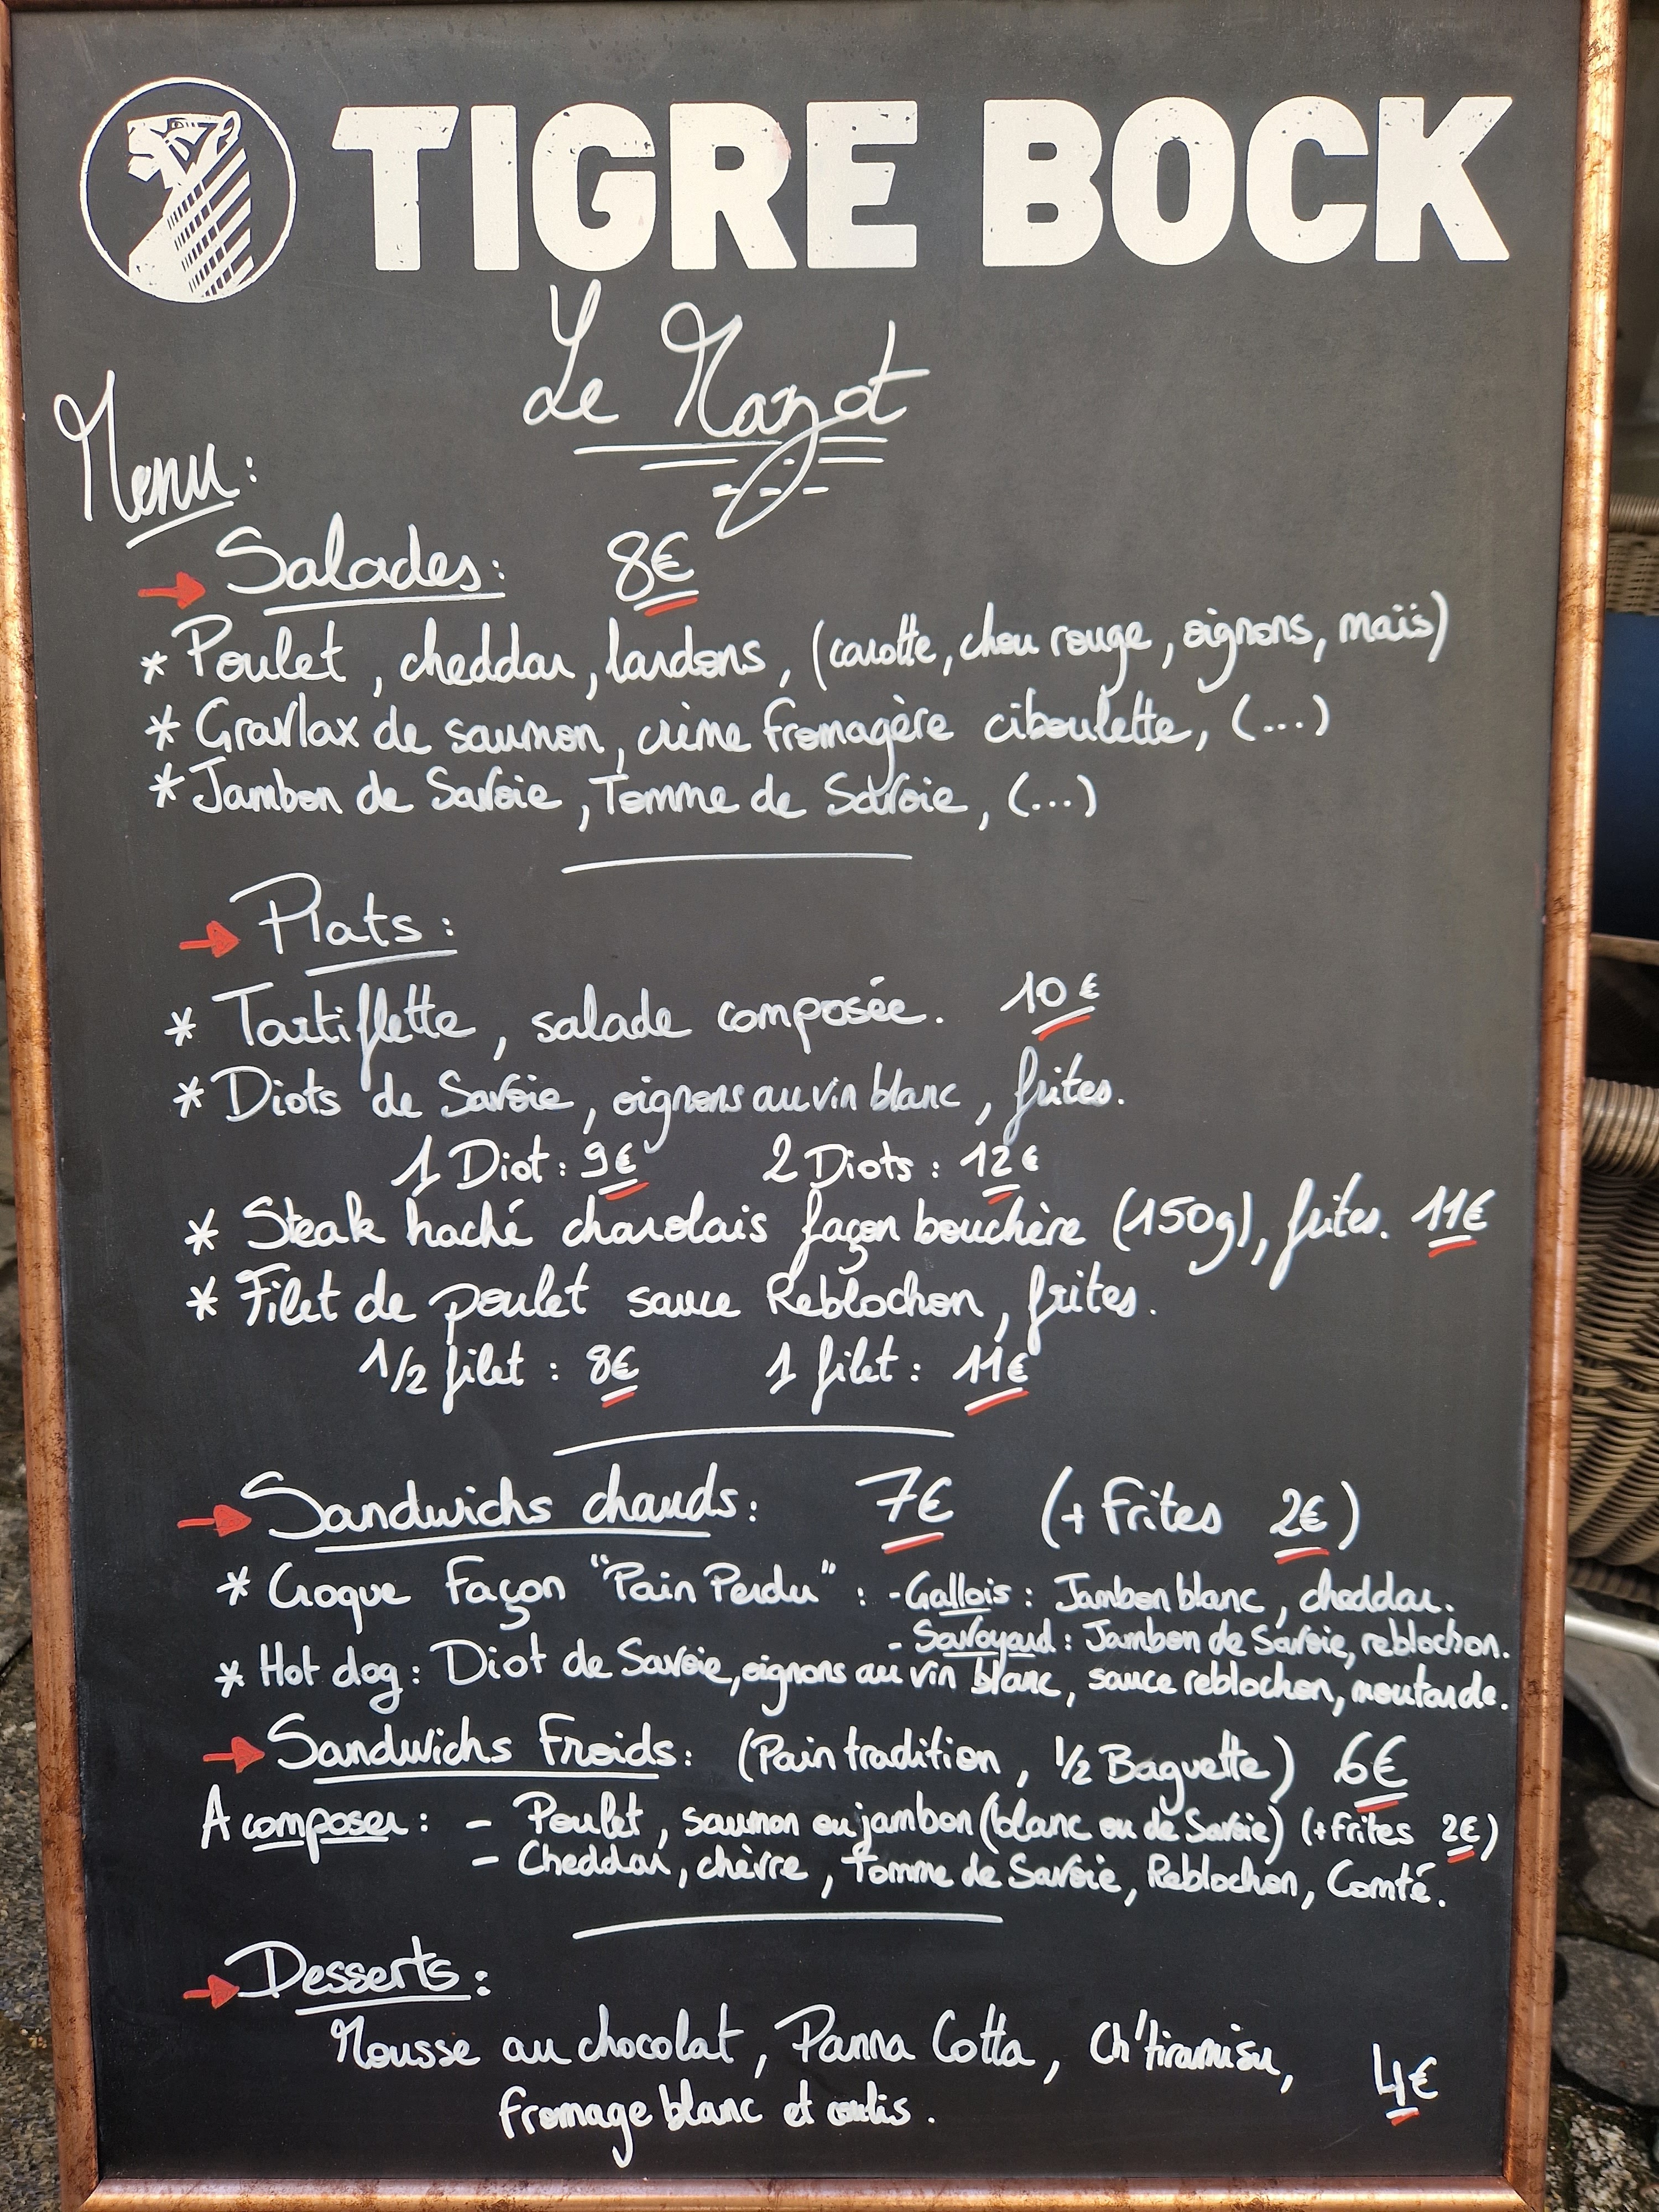 TIGRE BOCK
Le Mazot
Menu:
Salades: 8€
* Poulet, cheddar, lardons, (carotte, chou rouge, oignons, maïs)
* Gravlax de saumon, crème fromagère ciboulette, (...)
* Jambon de Savoie, Tomme de Savoie, (...)
Plats:
* Tartiflette, salade composée. 10€
* Diots de Savoie, oignons au vin blanc, frites.
1 Diot: 9€ 2 Diots: 12€
* Steak haché charolais façon bouchère (150g), frites. 11€
* Filet de poulet sauce Reblochon, frites.
1/2 filet: 8€ 1 filet: 11€
Sandwichs chauds: 7€ (+ Frites 2€)
* Croque Façon "Pain Perdu": - Gallois: Jambon blanc, cheddar.
- Savoyard: Jambon de Savoie, reblochon.
* Hot dog: Diot de Savoie, oignons au vin blanc, sauce reblochon, moutarde.
Sandwichs Froids: (Pain tradition, 1/2 Baguette) 6€
A composer: - Poulet, saumon ou jambon (blanc ou de Savoie) (+ Frites 2€)
- Cheddar, chèvre, Tomme de Savoie, Reblochon, Comté.
Desserts:
Mousse au chocolat, Panna Cotta, Ch'tiramisu,
fromage blanc et coulis. 4€